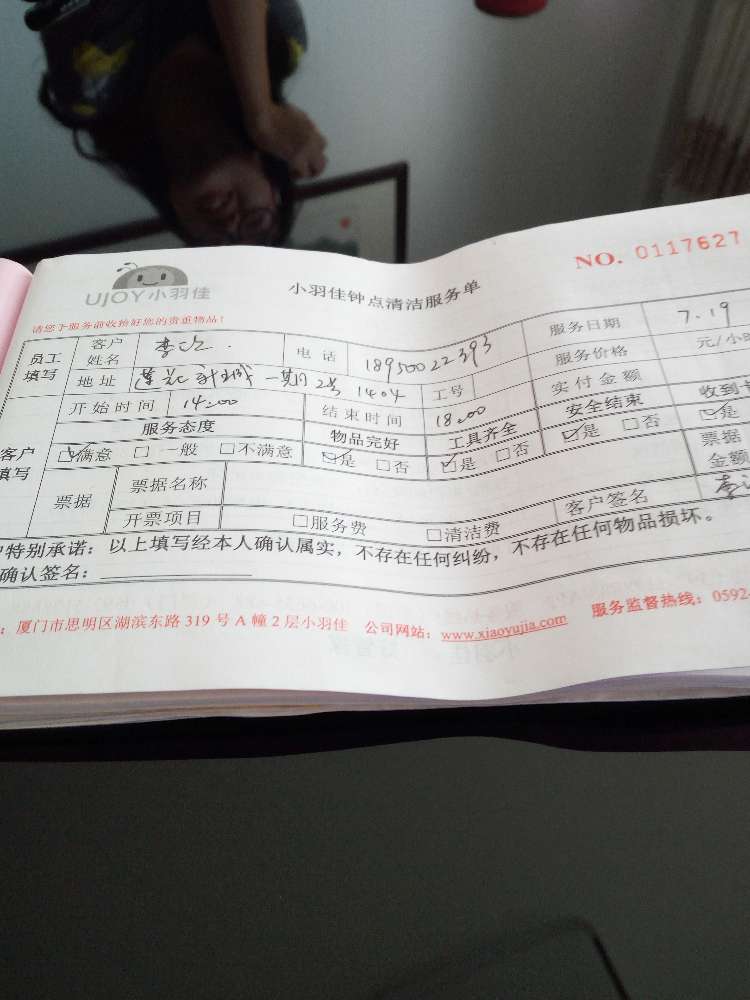 NO. 0117627
UJOY小羽佳
小羽佳钟点清洁服务单
请您于服务前收拾好您的贵重物品！
员工填写 客户姓名 李 电话 18950022393 服务日期 7.19
地址 莲花 城一期2号1404 工号 服务价格 元/小
开始时间 14:00 结束时间 18:00 实付金额
服务态度 物品完好 工具齐全 安全结束 收到
客户填写 ☑满意 □一般 □不满意 ☑是 □否 ☑是 □否 ☑是 □否 ☑是
票据 票据名称 票据金额
开票项目 □服务费 □清洁费 客户签名 李
特别承诺：以上填写经本人确认属实，不存在任何纠纷，不存在任何物品损坏。
确认签名：
：厦门市思明区湖滨东路 319 号 A 幢 2 层小羽佳 公司网站：www.xiaoyujia.com 服务监督热线：0592